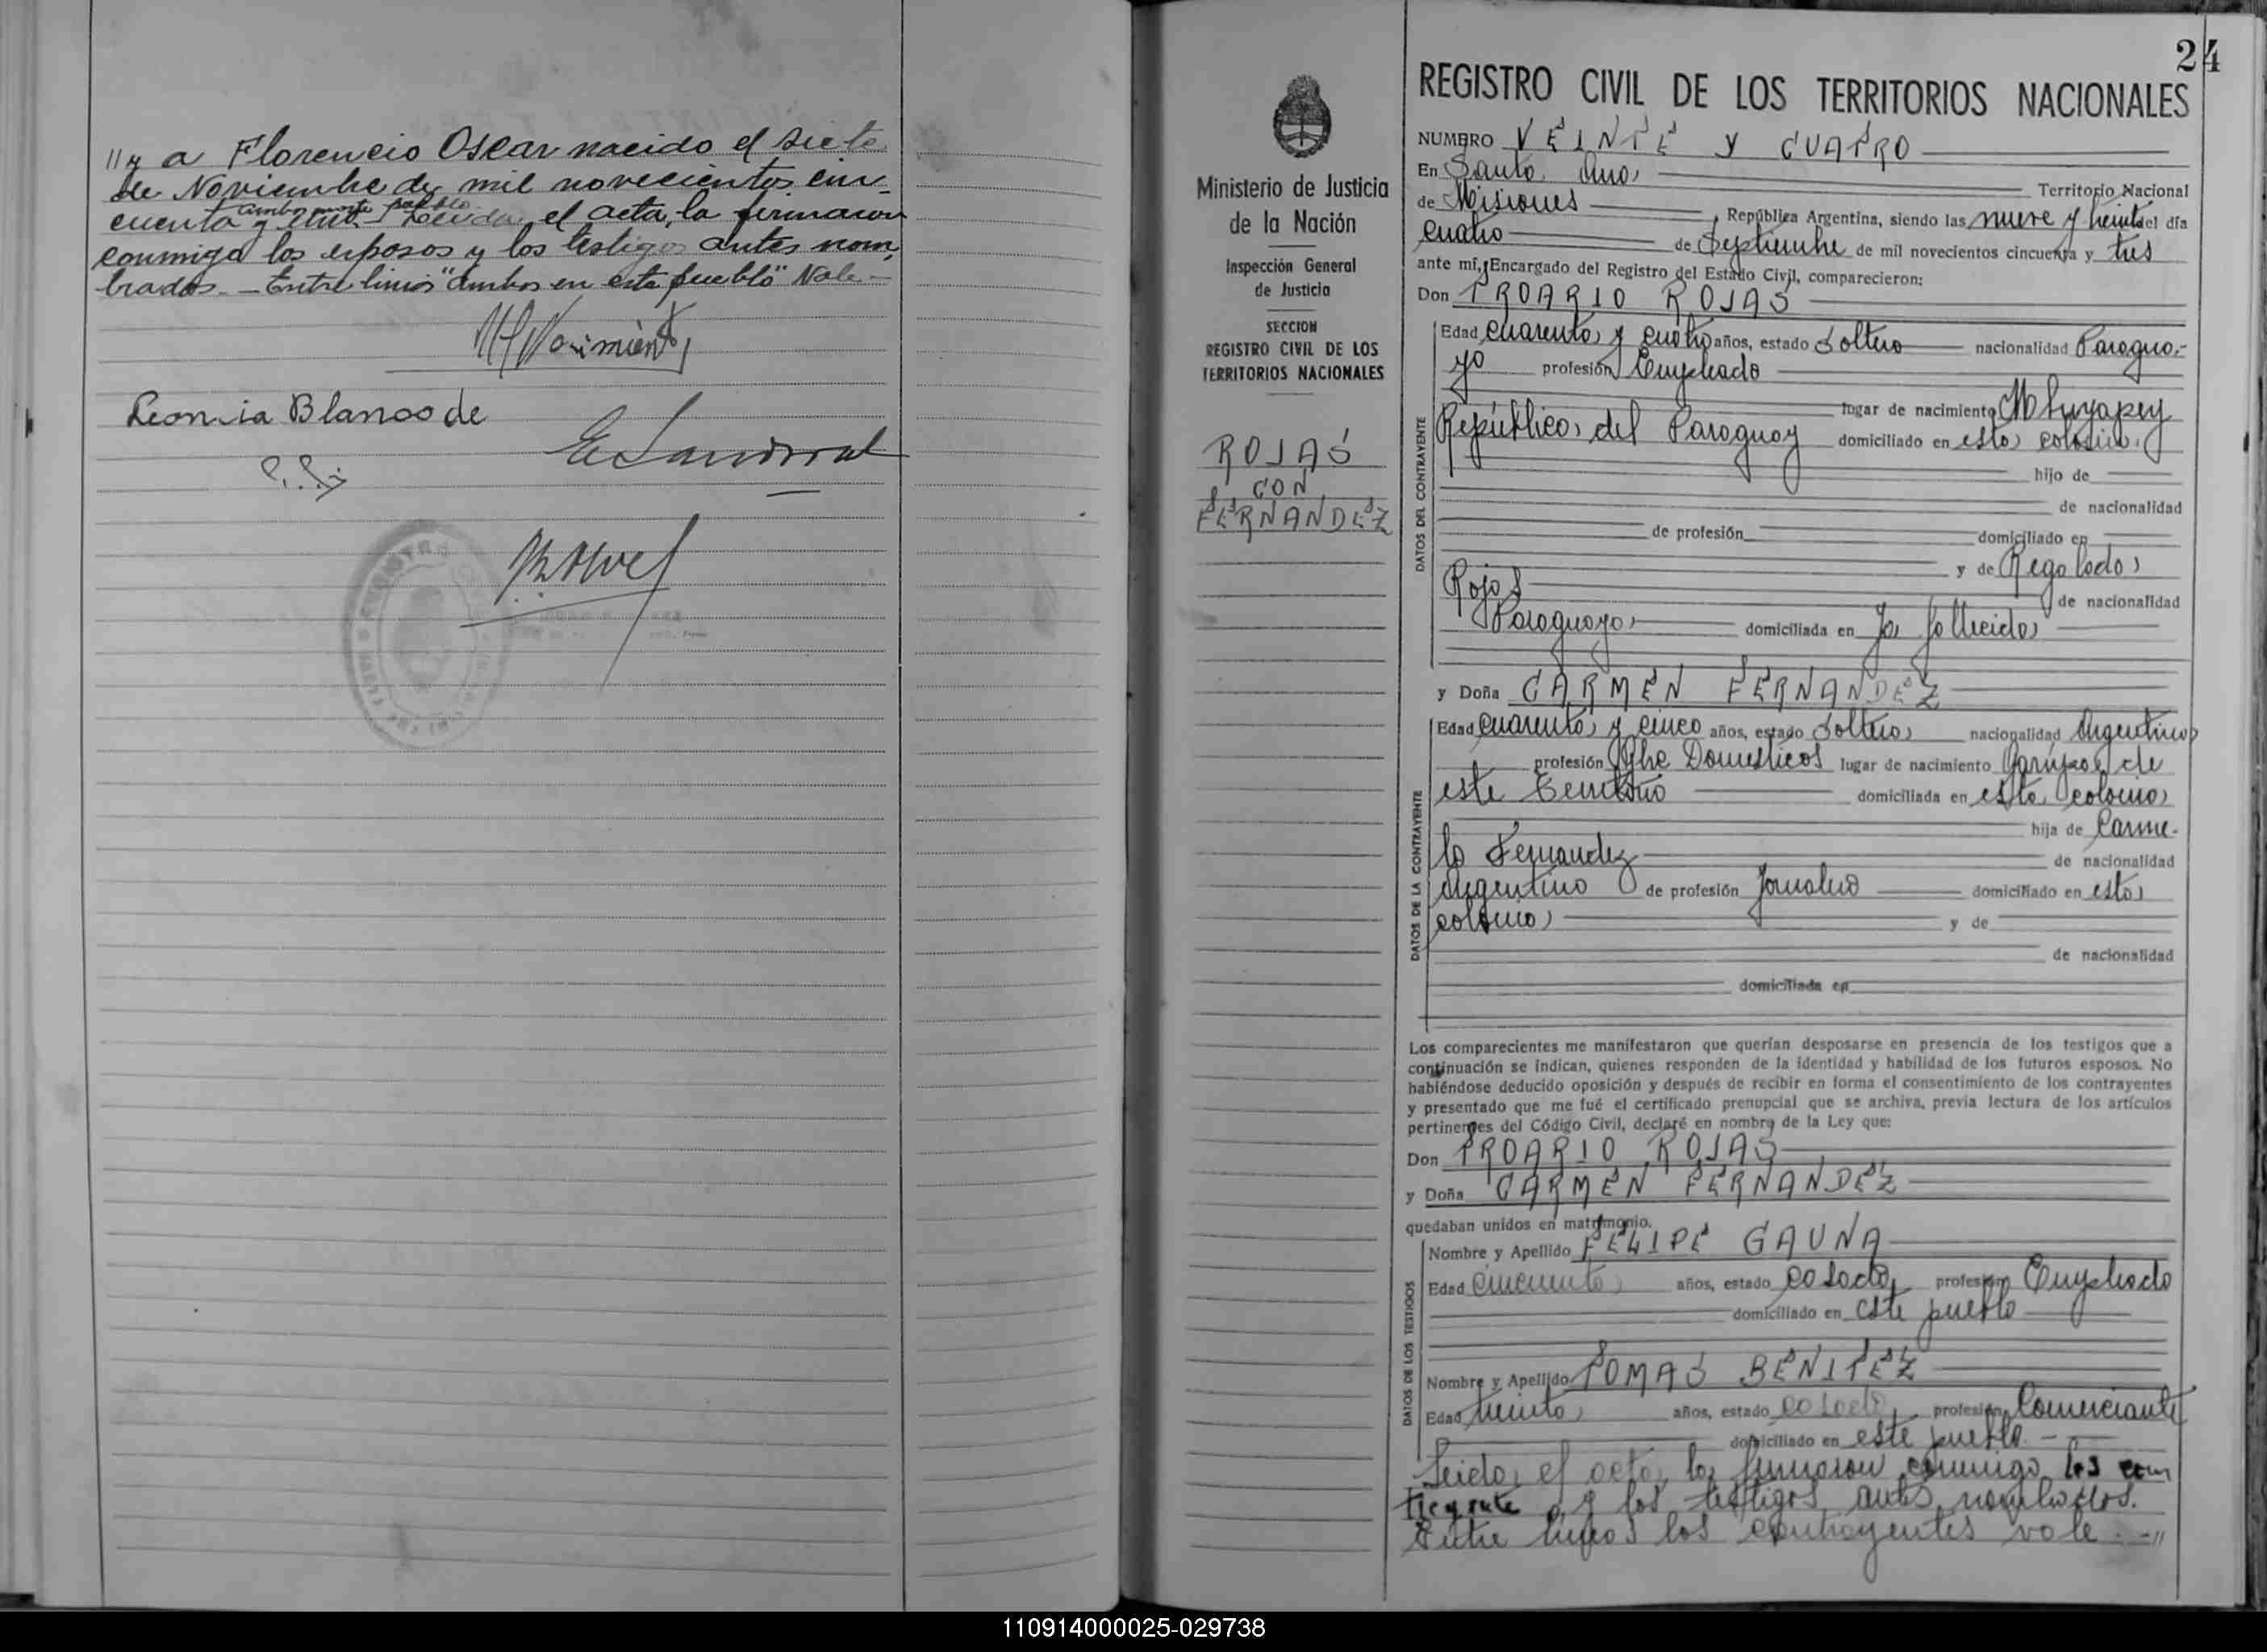 "y a Florencio Oscar nacido el siete
de Noviembre de mil novecientos cin-
ambos en este pueblo
cuenta y uno. Leida el acta, la firmaron
conmigo los esposos y los testigos antes nom-
brados. - Entre linias "ambos en este pueblo" Vale -
Leoncia Blanco de
24
REGISTRO CIVIL DE LOS TERRITORIOS NACIONALES
Ministerio de Justicia
de la Nación
Inspección General
de Justicia
SECCION
REGISTRO CIVIL DE LOS
TERRITORIOS NACIONALES
ROJAS
CON
FERNANDEZ
NUMERO VEINTE Y CUATRO
En Santa Ana Territorio Nacional
de Misiones, República Argentina, siendo las nueve y treinta del día
cuatro de Septiembre de mil novecientos cincuenta y tres
ante mí, Encargado del Registro del Estado Civil, comparecieron:
Don TROARIO ROJAS
DATOS DEL CONTRAYENTE
Edad cuarenta y cuatro años, estado soltero nacionalidad Paragua-
yo profesión Empleado
lugar de nacimiento Mbuyapey
República del Paraguay domiciliado en esta colonia
hijo de
de nacionalidad
de profesión domiciliado en
y de Regalada
Rojas de nacionalidad
Paraguaya domiciliada en Ya fallecida
y Doña CARMEN FERNANDEZ
DATOS DE LA CONTRAYENTE
Edad cuarenta y cinco años, estado soltera nacionalidad Argentina
profesión Qhe Domesticos lugar de nacimiento Garupá de
este Territorio domiciliada en esta colonia
hija de Carme-
lo Fernandez de nacionalidad
Argentino de profesión Jornalero domiciliado en esta
colonia y de
de nacionalidad
domiciliada en
Los comparecientes me manifestaron que querían desposarse en presencia de los testigos que a
continuación se indican, quienes responden de la identidad y habilidad de los futuros esposos. No
habiéndose deducido oposición y después de recibir en forma el consentimiento de los contrayentes
y presentado que me fué el certificado prenupcial que se archiva, previa lectura de los artículos
pertinentes del Código Civil, declaré en nombre de la Ley que:
Don TROARIO ROJAS
y Doña CARMEN FERNANDEZ
quedaban unidos en matrimonio.
DATOS DE LOS TESTIGOS
Nombre y Apellido FELIPE GAUNA
Edad cincuenta años, estado casado profesión Empleado
domiciliado en este pueblo
Nombre y Apellido TOMAS BENITEZ
Edad treinta años, estado casado profesión Comerciante
domiciliado en este pueblo. -
Leida el acta, la firmaron conmigo los con
trayente y los testigos antes nombrados.
Entre lineas los contrayentes vale .-"
110914000025-029738